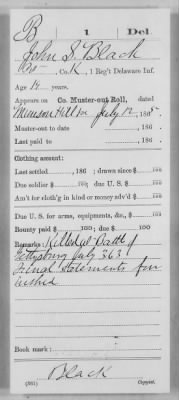 B | 1 | Del.
John S. Black
Co. K, 1 Reg't Delaware Inf.
Age years.
Appears on Co. Muster-out Roll, dated
Munsons Hill Va July 12, 1865.
Muster-out to date , 186 .
Last paid to , 186 .
Clothing account:
Last settled , 186 ; drawn since $ 100
Due soldier $ 100; due U. S. $ 100
Am't for cloth'g in kind or money adv'd $ 100
Due U. S. for arms, equipments, &c., $ 100
Bounty paid $ 100; due $ 100
Remarks: Killed at Battle of
Gettysburg July 3 63
Final Statements fur
nished
Book mark:
Black
(361) Copyist.